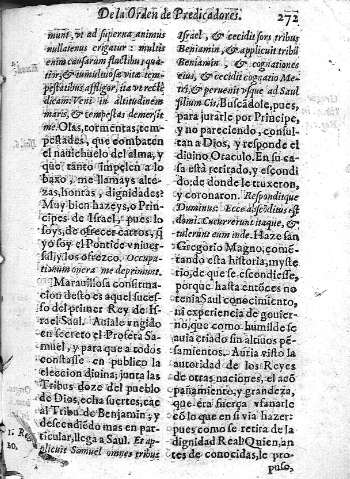 De la Orden de Predicadores.
272
munt, vt ad superna animus
nullatenus erigatur: multis
enim causarum fluctibus quatior,
& tumultuosæ vitæ tempestatibus
affligor, ita vt rectè
dicam: Veni in altitudinem
maris, & tempestas demersit
me. Olas, tormentas, tempestades,
que combaten
el nauichuelo del alma, y
que tanto impelen a lo
baxo, me llamays altezas,
honras, dignidades?
Muy bien hazeys, o Principes
de Israel, pues lo
soys, de ofrecer carros, q̃
yo soy el Pontifice vniuersal,
y los ofrezco. Occupationum
onera me deprimunt.
Marauillosa confirmacion
desto es aquel sucesso
del primer Rey de Israel
Saul. Auiale vngido
en secreto el Profeta Samuel,
y para que a todos
constasse en publico la
eleccion diuina; junta las
Tribus doze del pueblo
de Dios, echa suertes, cae
al Tribu de Benjamin, y
descendiẽdo mas en particular,
llega a Saul. Et applicuit
Samuel omnes tribus
1. Reg.
10.
Israel, & cecidit sors tribus
Beniamin, & applicuit tribũ
Beniamin & cognationes
eius, & cecidit cognatio Metri,
& peruenit vsque ad Saul
filium Cis. Buscãdole, pues,
para jurarle por Principe,
y no pareciendo, consultan
a Dios, y responde el
diuino Oraculo. En su casa
està retirado, y escondido:
de donde le truxeron,
y coronaron. Responditque
Dominus: Ecce absconditus est
domi. Cucurrerunt itaque, &
tulerunt eum inde. Haze san
Gregorio Magno, comẽtando
esta historia, mysterio,
de que se escondiesse,
porque hasta entõces no
tenia Saul conocimiento,
ni experiencia de gouierno,
que como humilde se
auia criado sin altiuos pẽsamientos.
Auria visto la
autoridad de los Reyes
de otras naciones, el acõpañamiento,
y grandeza,
que era fuerça vsanarle
cõ lo que en si via hazer:
pues como se retira de la
dignidad Real? Quien, antes
de conocidas, le propuso,